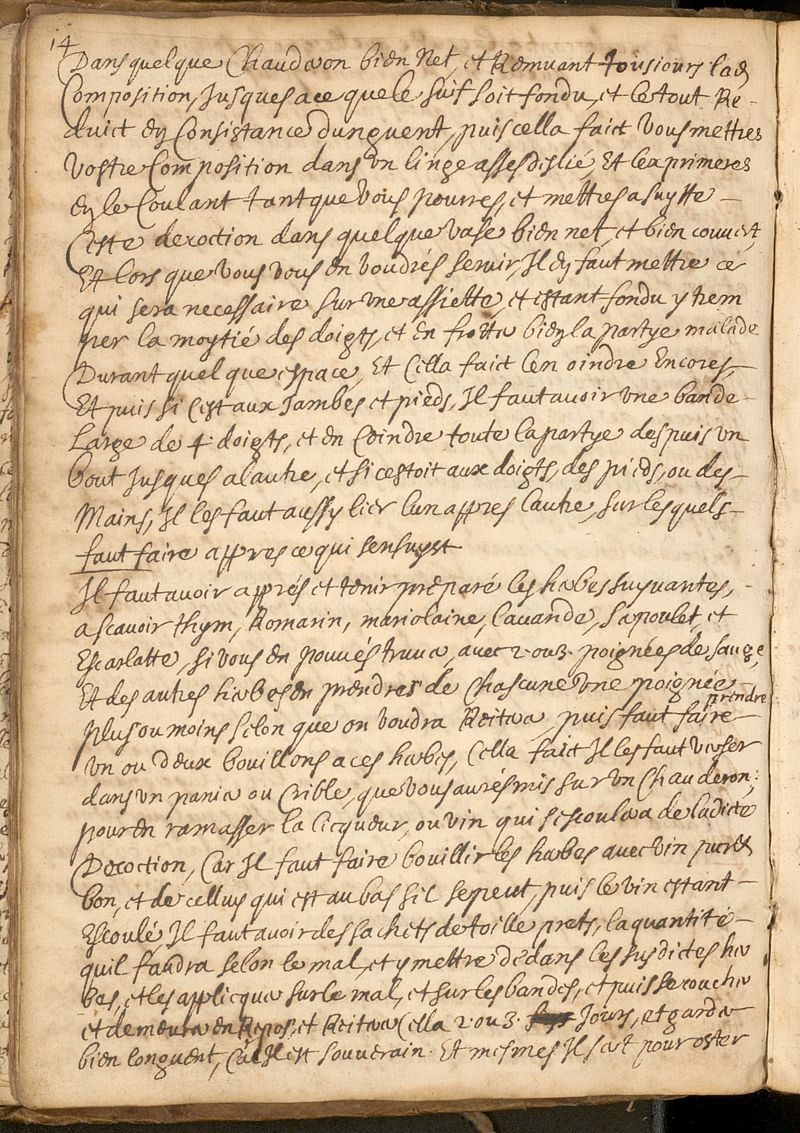 14
Dans quelque Chauderon bien Net, et Remuant tousiours lad
Composition, Jusques a ce que le suif soit fondu, et le tout Re-
duict en Consistance dunguent, puis cella faict Vous mettres
Vostre Composition dans un linge asses deslié, Et lexprimeres
en le Coulant tant que Vous pourres, et mettres a suytte -
Ceste decoction dans quelque vase bien net, et bien couuert,
Et lors que vous vous en voudrés seruir, Il en faut mettre ce
qui sera necessaire sur une assiette, et estant fondu y trem
per la moytié des doigts, et en frotter bien la partye malade
Durant quelque espace, Et Cella faict len oindre Encores,
Et puis si cest aux Jambes et pieds, Il faut auoir une bande-
Large de 4 doigts, et en Ceindre toute la partye despuis un
bout Jusques a lautre, et si cestoit aux doigts, des pieds, ou des-
Mains, Il les faut aussy lier lun appres lautre, sur lesquels-
faut faire appres ce qui sensuyt
Il faut auoir apprés et tenir preparé les herbes suyuantes, -
a scauoir thym, Romarin, mariolaine, lauande, sapoulet, et
Escarlatte, si vous en pouués truuer, avec 2 ou 3 poignées de sauge,
Et des autres herbes en prendres de Chascune une poignée
plus ou moins selon que on voudra Reiterer, puis faut faire prendre
un ou deux bouillons a ces herbes, Cella faict Il les faut verser
dans un panier ou Crible, que vous aurés mis sur un Chauderon;
pour en ramasser la licqueur, ou vin qui sescoulera de ladicte
Decoction, Car Il faut faire bouillir les herbes avec vin pur et
bon, et de celluy qui est au bas sil se peut, puis le vin estant-
Escoulé, Il faut auoir des sachets de toille prets, la quantité-
quil faudra selon le mal, et y mettre dedans les susdictes her
bes, et les applicquer sur le mal, et sur les bandes, et puis se coucher
et demeurer en Repos, et Reiterer Cella 2 ou 3 Jours, et garder
bien longuent, Car Il est souuerain. Et mesmes Il sert pour oster